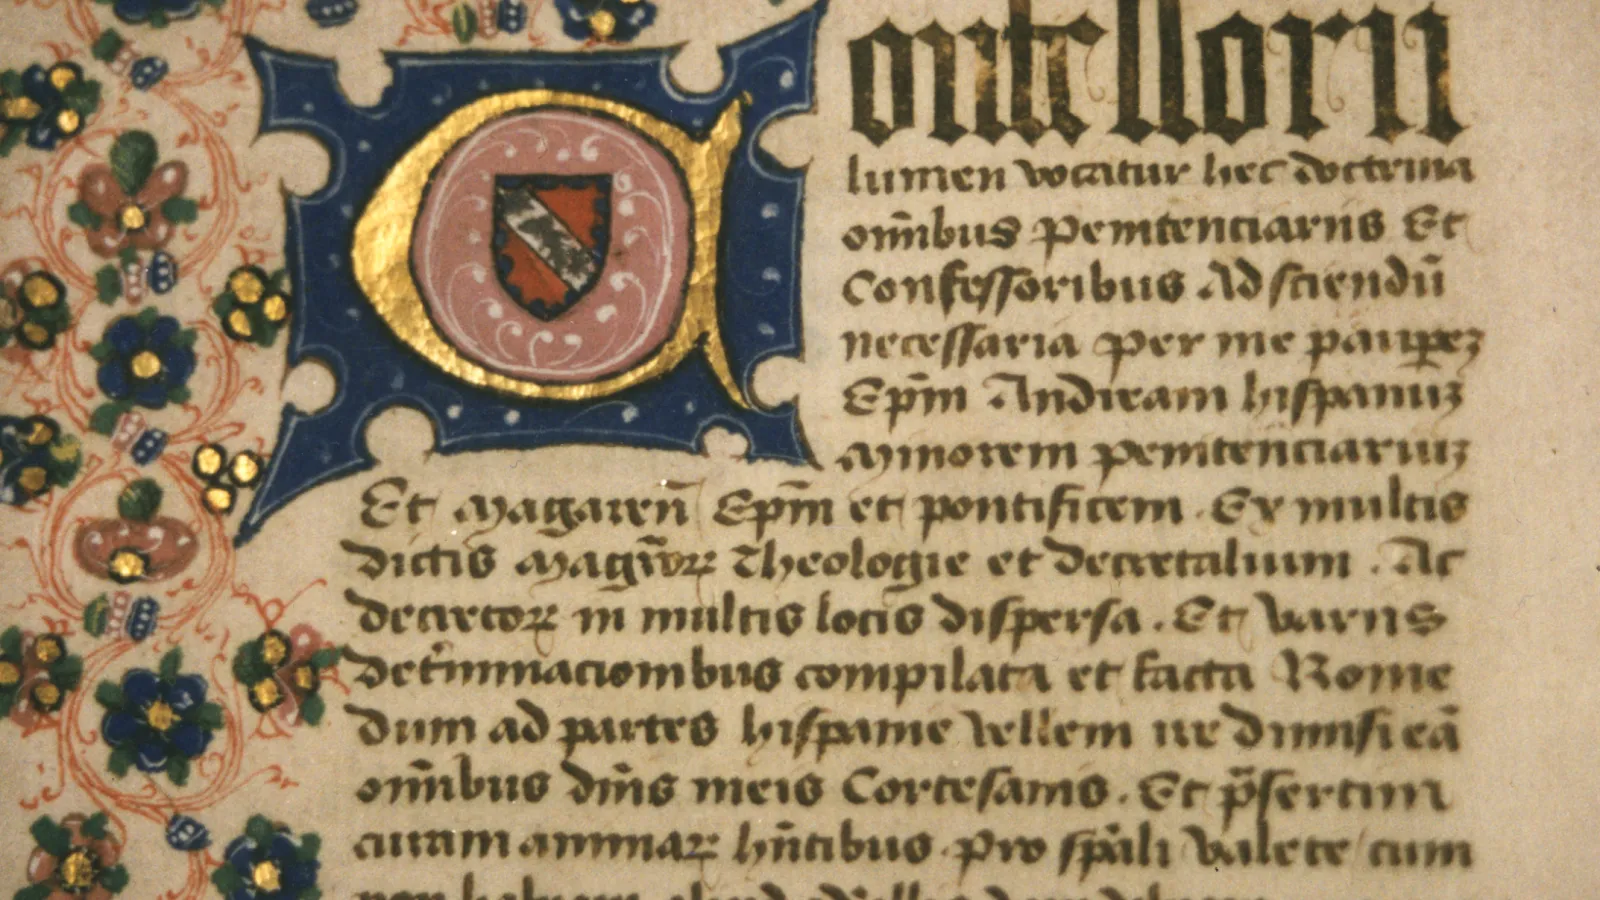 Confessorū
lumen vocatur hec doctrina
om̄ibus Penitenciariis Et
Confessoribus Ad sciendū
necessaria per me pauꝑeꝫ
Ep̄m Andream hispanuꝫ
Minorem penitenciariuꝫ
Et Magareñ Ep̄m et pontificem . Ex multis
dictis Magr̄oꝝ Theologie et decretalium . Ac
decretoꝝ in multis locis dispersa . Et variis
det̉minacionibus compilata et facta Rome
dum ad partes hispanie vellem ire dimisi eā
om̄ibus dn̄is meis Cortesanis . Et p̄sertim
curam animaꝝ hn̄tibus . pro sp̄ali valete cum
non